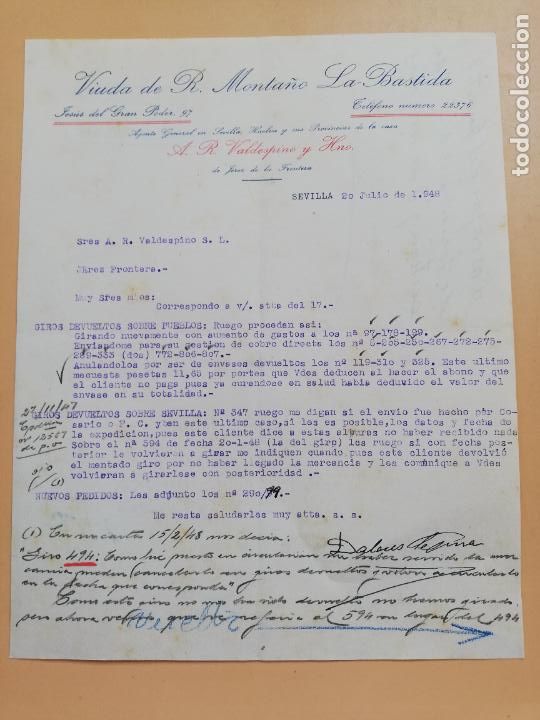 Viuda de R. Montaño La-Bastida
Jesús del Gran Poder, 97
Teléfono numero 22376
Agente General en Sevilla, Huelva y sus Provincias de la casa
A. R. Valdespino y Hno.
de Jerez de la Frontera
SEVILLA 20 Julio de 1.948
Sres A. R. Valdespino S. L.
JErez Frontera.-
Muy Sres mios:
Correspondo a v/. atta del 17.-
GIROS DEVUELTOS SOBRE PUEBLOS: Ruego procedan asi:
Girando nuevamente con aumento de gastos a los nª 97-178-199.
Enviandome para su gestion de cobro directa los nª 8-205-250-267-272-275-
289-333 (dos) 772-806-807.-
Anulandolos por ser de envases devueltos los nª 119-310 y 328. Este ultimo
mecuesta pesetas 11,65 por portes que Vdes deducen al hacer el abono y que
el cliente no paga pues ya curendose en salud habia deduvido el valor del
envase en su totalidad.-
GIROS DEVUELTOS SOBRE SEVILLA: Nª 347 ruego me digan si el envio fue hecho por Co-
sario o F. C. yben este ultimo caso, si les es posible, los datos y fecha de
la expedicion, pues este cliente dice a estas alyures no haber recibido nada
Sobre el nª 594 de fecha 20-1-48 (la del giro) les ruego si con fecha pos-
terior le volvieron a girar me indiquen cuando, pues este cliente devolvió
el mentado giro por no haber llegado la mercencia y les comunique a Vdes
volvieran a girarlese con posterioridad .-
NUEVOS PEDIDOS: Les adjunto los nª 290/99.-
Me resta saludarles muy atta. s. s.
27/11/47
nº 12557
giro
(1)
(1) En su carta 15/2/48 nos decia:
"Giro 494: Como les puesto en circulacion sin haber servido la mer-
cancia, pueden cancelarlo
en la fecha que corresponda"
Como este giro no nos ha sido devuelto no hemos girado,
pero ahora vemos que se referia al 594 en lugar del 494